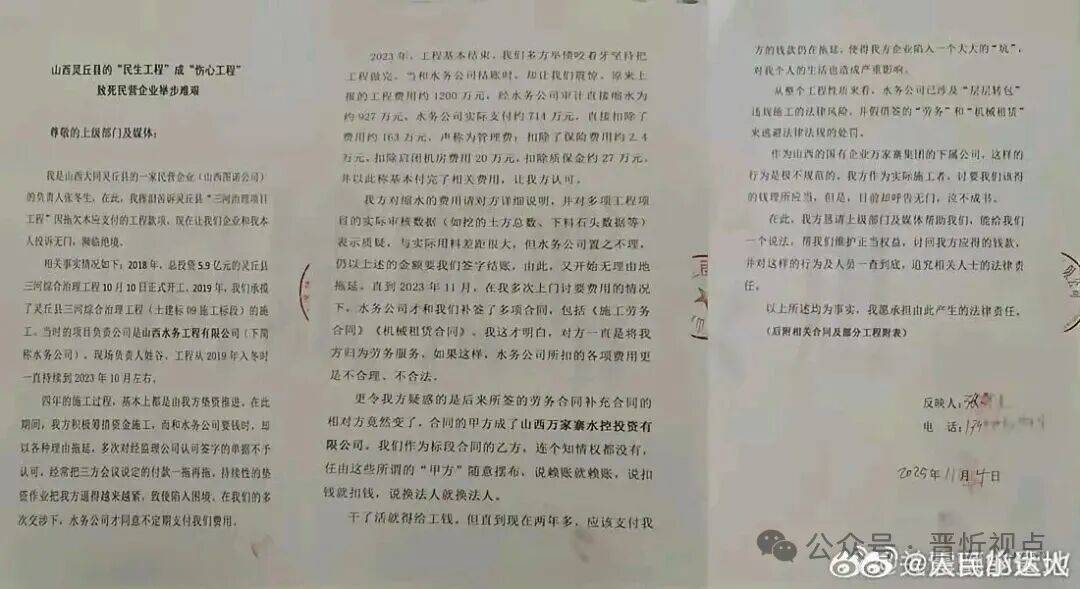 山西灵丘县的“民生工程”成“伤心工程”
致死民营企业举步难艰
尊敬的上级部门及媒体：
我是山西大同灵丘县的一家民营企业（山西图诺公司）
的负责人张冬生，在此，我挥泪苦诉灵丘县“三河治理项目
工程”因拖欠本应支付的工程款项，现在让我们企业和我本
人投诉无门，濒临绝境。
相关事实情况如下：2018年，总投资5.9亿元的灵丘县
三河综合治理工程10月10日正式开工，2019年，我们承揽
了灵丘县三河综合治理工程（土建标09施工标段）的施
工。当时的项目负责公司是山西水务工程有限公司（下简
称水务公司），现场负责人姓谷，工程从2019年入冬时
一直持续到2023年10月左右。
四年的施工过程，基本上都是由我方垫资推进，在此
期间，我方积极筹措资金施工，而和水务公司要钱时，却
以各种理由拖延，多次对经监理公司认可签字的单据不予
认可，经常把三方会议议定的付款一拖再拖，持续性的垫
资作业把我方逼得越来越紧，致使陷入困境，在我们的多
次交涉下，水务公司才同意不定期支付我们费用。
2023年，工程基本结束，我们多方举债咬着牙坚持把
工程做完，当和水务公司结账时，却让我们震惊，原来上
报的工程费用约1200万元，经水务公司审计直接缩水为
约927万元，水务公司实际支付约714万元，直接扣除了
费用约163万元，声称为管理费；扣除了保险费用约2.4
万元，扣除启闭机房费用20万元，扣除质保金约27万元，
并以此称基本付完了相关费用，让我方认可。
我方对缩水的费用请对方详细说明，并对多项工程项
目的实际审核数据（如挖的土方总数、下料石头数据等）
表示质疑，与实际用料差距很大，但水务公司置之不理，
仍以上述的金额要我们签字结账，由此，又开始无理由地
拖延。直到2023年11月，在我多次上门讨要费用的情况
下，水务公司才和我们补签了多项合同，包括《施工劳务
合同》《机械租赁合同》，我这才明白，对方一直是将我
方归为劳务服务，如果这样，水务公司所扣的各项费用更
是不合理、不合法。
更令我方疑惑的是后来所签的劳务合同补充合同的
相对方竟然变了，合同的甲方成了山西万家寨水控投资有
限公司，我们作为标段合同的乙方，连个知情权都没有，
任由这些所谓的“甲方”随意摆布，说赖账就赖账，说扣
钱就扣钱，说换法人就换法人。
干了活就得给工钱，但直到现在两年多，应该支付我
方的钱款仍在拖延，使得我方企业陷入一个大大的“坑”，
对我个人的生活也造成严重影响。
从整个工程性质来看，水务公司已涉及“层层转包”
违规施工的法律风险，并假借签的“劳务”和“机械租赁”
来逃避法律法规的处罚。
作为山西的国有企业万家寨集团的下属公司，这样的
行为是极不规范的，我方作为实际施工者，讨要我们该得
的钱理所应当，但是，目前却呼告无门，泣不成书。
在此，我方恳请上级部门及媒体帮助我们，能给我们
一个说法，帮我们维护正当权益，讨回我方应得的钱款，
并对这样的行为及人员一查到底，追究相关人士的法律责
任。
以上所述均为事实，我愿承担由此产生的法律责任。
（后附相关合同及部分工程附表）
反映人：
电 话：
2025年11月4日
公众号·晋忻视点